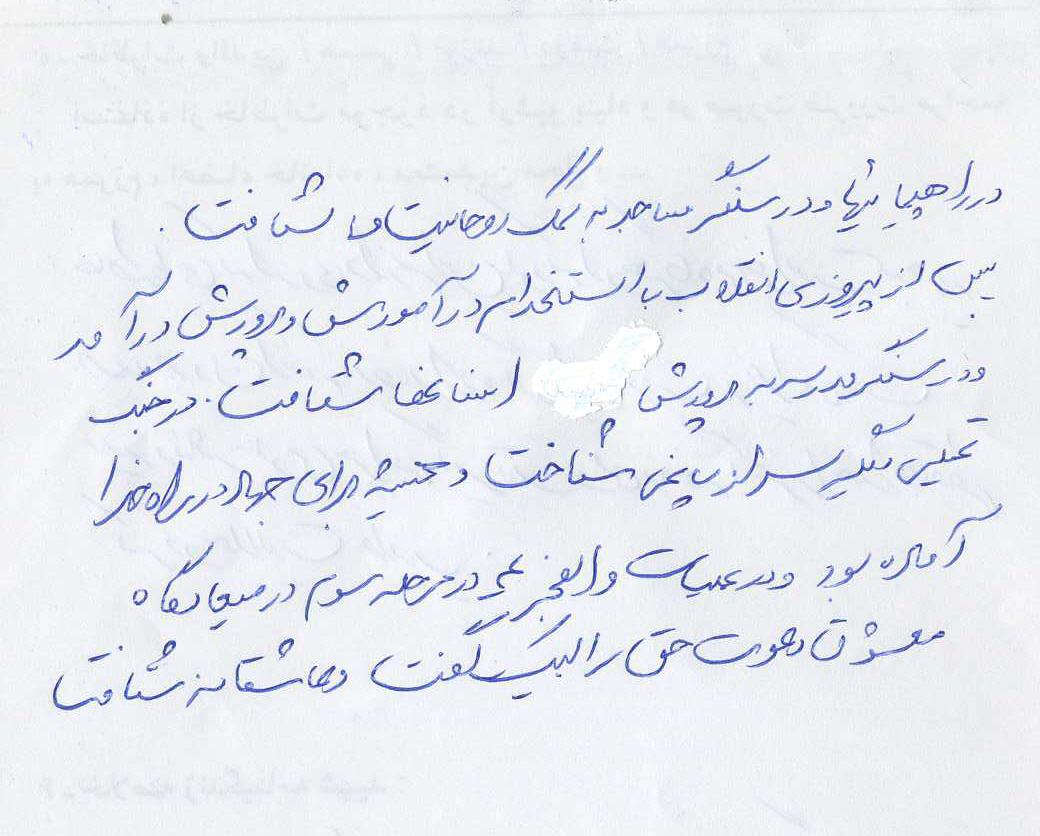 در راهپیمائیها و در سنگر مساجد به کمک روحانیت می شتافت.
پس از پیروزی انقلاب با استخدام در آموزش و پرورش درآمد
و در سنگر مدرسه به پرورش انسانها شتافت. در جنگ
تحمیلی سر از پا نمی شناخت و همیشه برای جهاد در راه خدا
آماده بود و در عملیات والفجر در مرحله سوم در میعادگاه
معشوق دعوت حق را لبیک گفت و عاشقانه شتافت